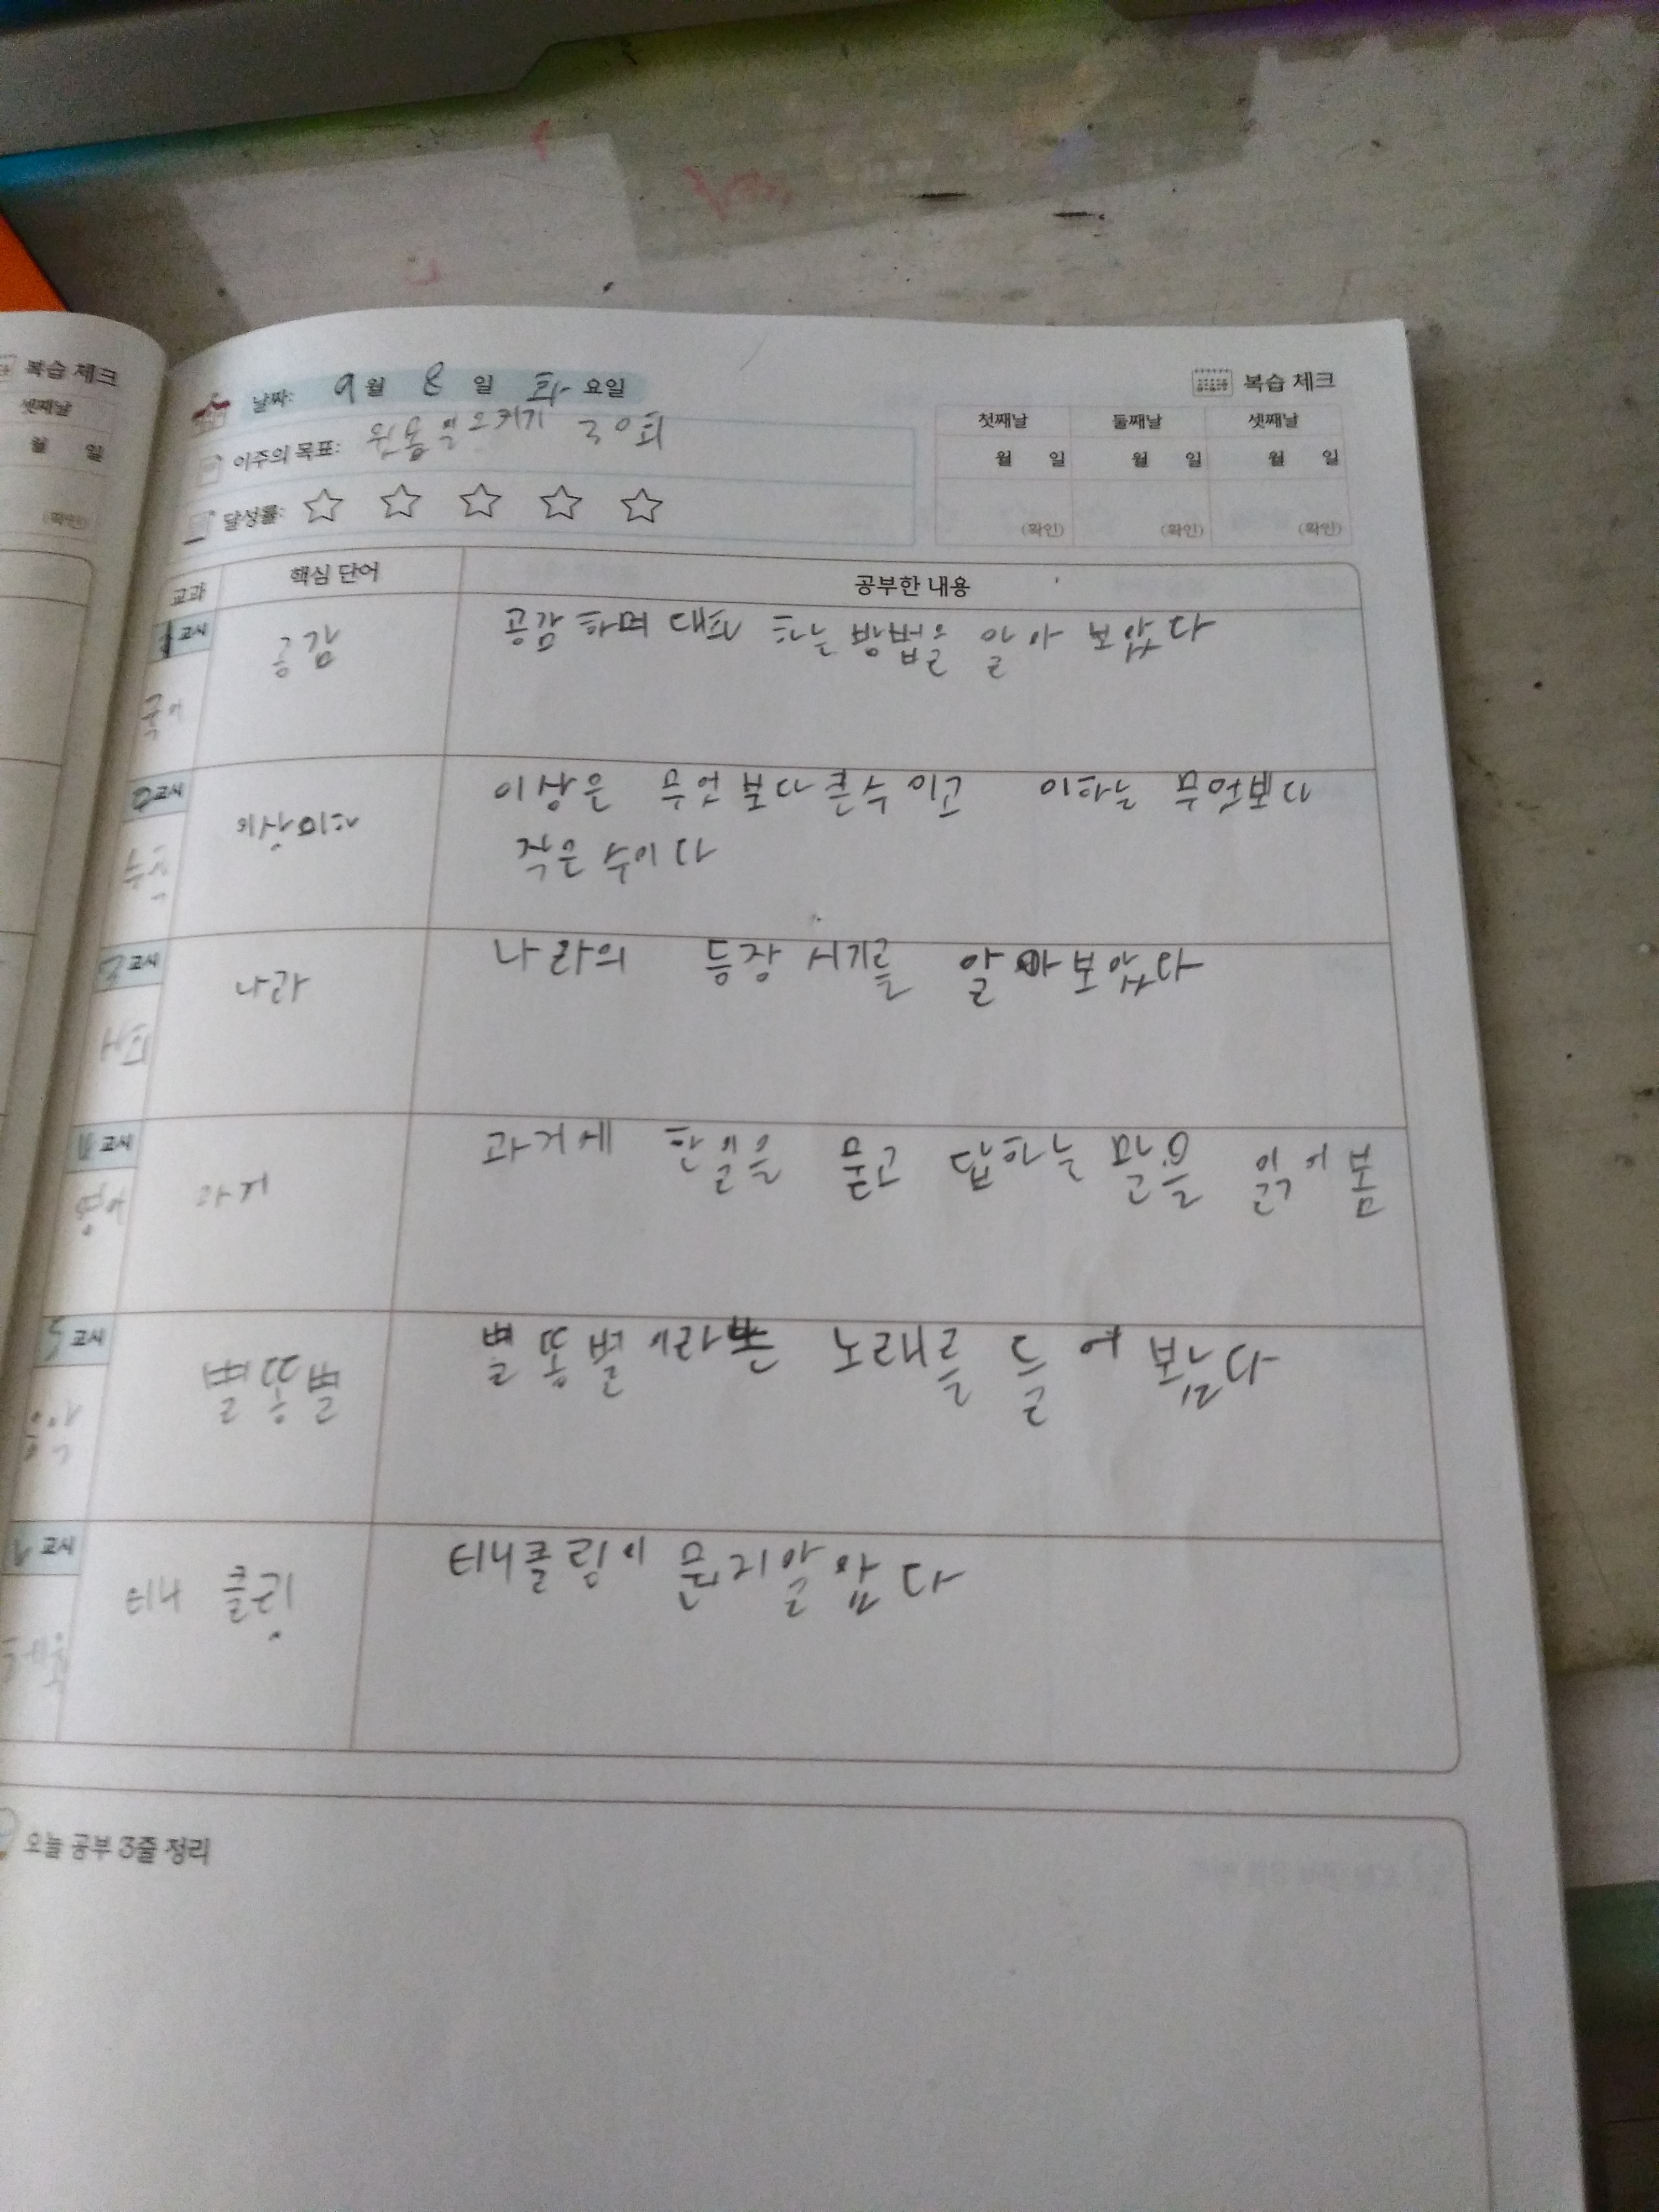 복습 체크
셋째날
월 일
(확인)
날짜: 9월 8일 화요일
이주의 목표: 윗몸일으키기 30회
달성률: ☆ ☆ ☆ ☆ ☆
복습 체크
첫째날 둘째날 셋째날
월 일 월 일 월 일
(확인) (확인) (확인)
교과 핵심 단어 공부한 내용
1교시 국어 공감 공감 하며 대화 하는 방법을 알아 보았다
2교시 수학 이상이하 이상은 무엇보다큰수이고 이하는 무엇보다
작은 수이다
3교시 사회 나라 나라의 등장 시기를 알아보았다
4교시 영어 과거 과거에 한일을 묻고 답하는 말을 읽어봄
5교시 음악 별똥별 별똥별이라는 노래를 들어 보았다
6교시 체육 티니 클링 티니클링이 뭔지알았다
오늘 공부 3줄 정리